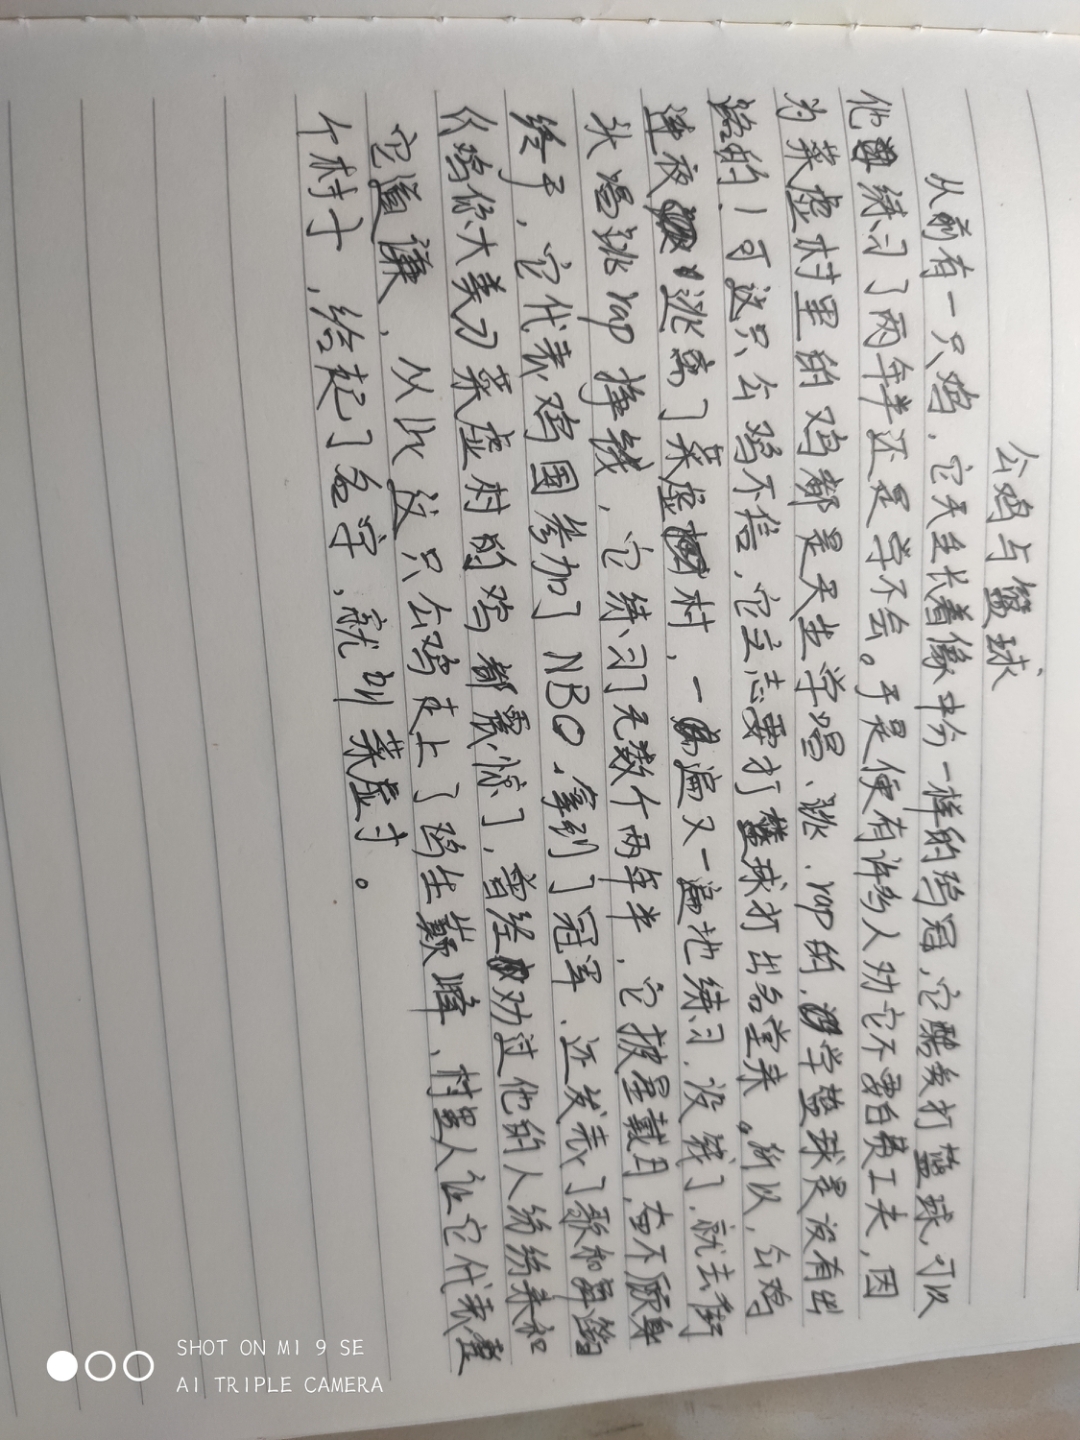 公鸡与篮球
从前有一只鸡,它天生长着像中分一样的鸡冠,它酷爱打篮球,可以
他练习了两年半还是学不会。于是便有许多人劝它不要白费工夫,因
为菜虚村里的鸡都是天生学唱、跳、rap的,学篮球是没有出
路的!可这只公鸡不信,它立志要打篮球打出名堂来。所以,公鸡
连夜逃离了菜虚村,一遍又一遍地练习,没钱了,就去街
头唱跳rap挣钱,它练习了无数个两年半,它披星戴月,奋不顾身
终于,它代表鸡国参加了NBO,拿到了冠军,还发表了歌和舞蹈
《鸡你大美》菜虚村的鸡都震惊了,曾经劝过他的人纷纷来和
它道谦,从此这只公鸡走上了鸡生巅峰,村里人让它代表整
个村子,给起了名字,就叫菜虚寸。
SHOT ON MI 9 SE
AI TRIPLE CAMERA